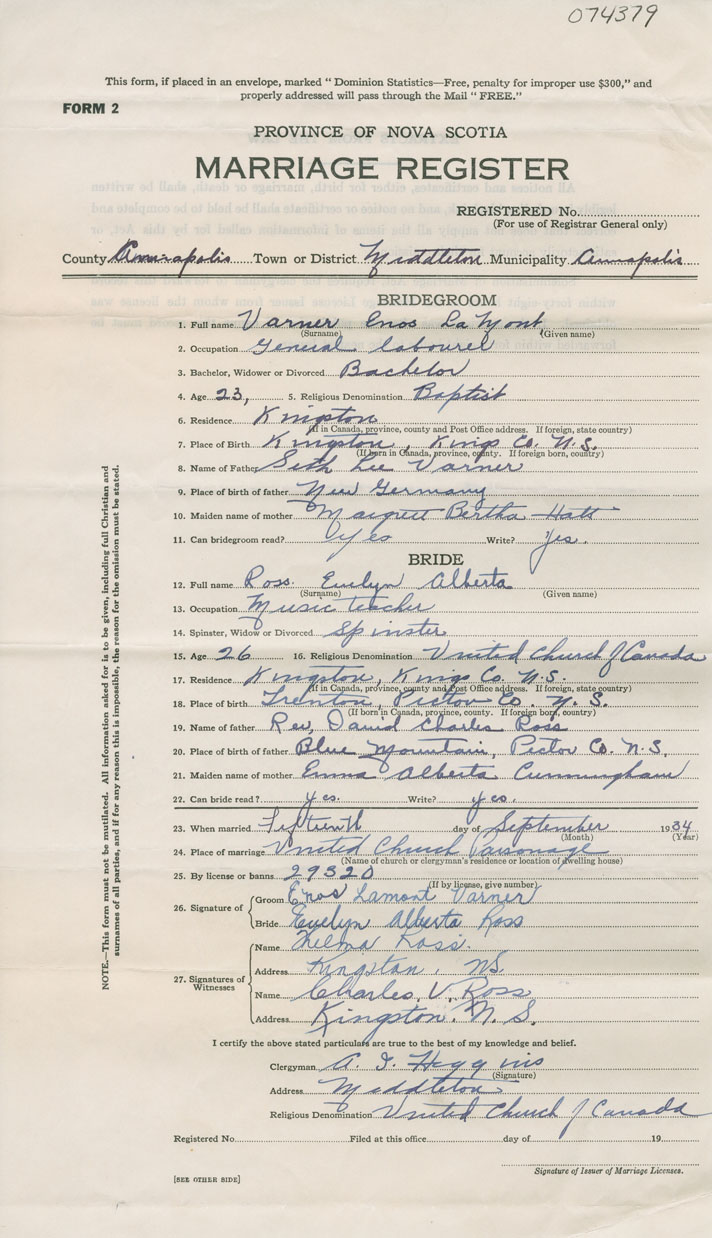 074379
This form, if placed in an envelope, marked “ Dominion Statistics—Free, penalty for improper use $300,” and
properly addressed will pass through the Mail “ FREE.”
FORM 2
PROVINCE OF NOVA SCOTIA
MARRIAGE REGISTER
REGISTERED No.
(For use of Registrar General only)
County Annapolis Town or District Middleton Municipality Annapolis
BRIDEGROOM
1. Full name Varner Enos LaMont
(Surname) (Given name)
2. Occupation General labourer
3. Bachelor, Widower or Divorced Bachelor
4. Age 23, 5. Religious Denomination Baptist
6. Residence Kingston
(If in Canada, province, county and Post Office address. If foreign, state country)
7. Place of Birth Kingston, Kings Co. N.S.
(If born in Canada, province, county. If foreign born, country)
8. Name of Father Seth Lee Varner
9. Place of birth of father New Germany
10. Maiden name of mother Margret Bertha Hatt
11. Can bridegroom read? Yes Write? Yes.
BRIDE
12. Full name Ross. Evelyn Alberta
(Surname) (Given name)
13. Occupation Music teacher
14. Spinster, Widow or Divorced Spinster
15. Age 26 16. Religious Denomination United Church of Canada
17. Residence Kingston, Kings Co. N.S.
(If in Canada, province, county and Post Office address. If foreign, state country)
18. Place of birth Trenton, Pictou Co. N.S.
(If born in Canada, province, county. If foreign born, country)
19. Name of father Rev. David Charles Ross
20. Place of birth of father Blue Mountain, Pictou Co. N.S.
21. Maiden name of mother Emma Alberta Cunningham
22. Can bride read? yes. Write? yes.
23. When married Fifteenth day of September 1934
(Month) (Year)
24. Place of marriage United Church Parsonage
(Name of church or clergyman's residence or location of dwelling house)
25. By license or banns 29320
(If by license, give number)
26. Signature of
Groom Enos Lamont Varner
Bride Evelyn Alberta Ross
27. Signatures of Witnesses
Name Thelma Ross.
Address Kingston. NS.
Name Charles, V. Ross
Address Kingston. N.S.
I certify the above stated particulars are true to the best of my knowledge and belief.
Clergyman A. I. Higgins
(Signature)
Address Middleton
Religious Denomination United Church of Canada
Registered No. Filed at this office day of 19
Signature of Issuer of Marriage Licenses.
[SEE OTHER SIDE]
NOTE.—This form must not be mutilated. All information asked for is to be given, including full Christian and
surnames of all parties, and if for any reason this is impossible, the reason for the omission must be stated.